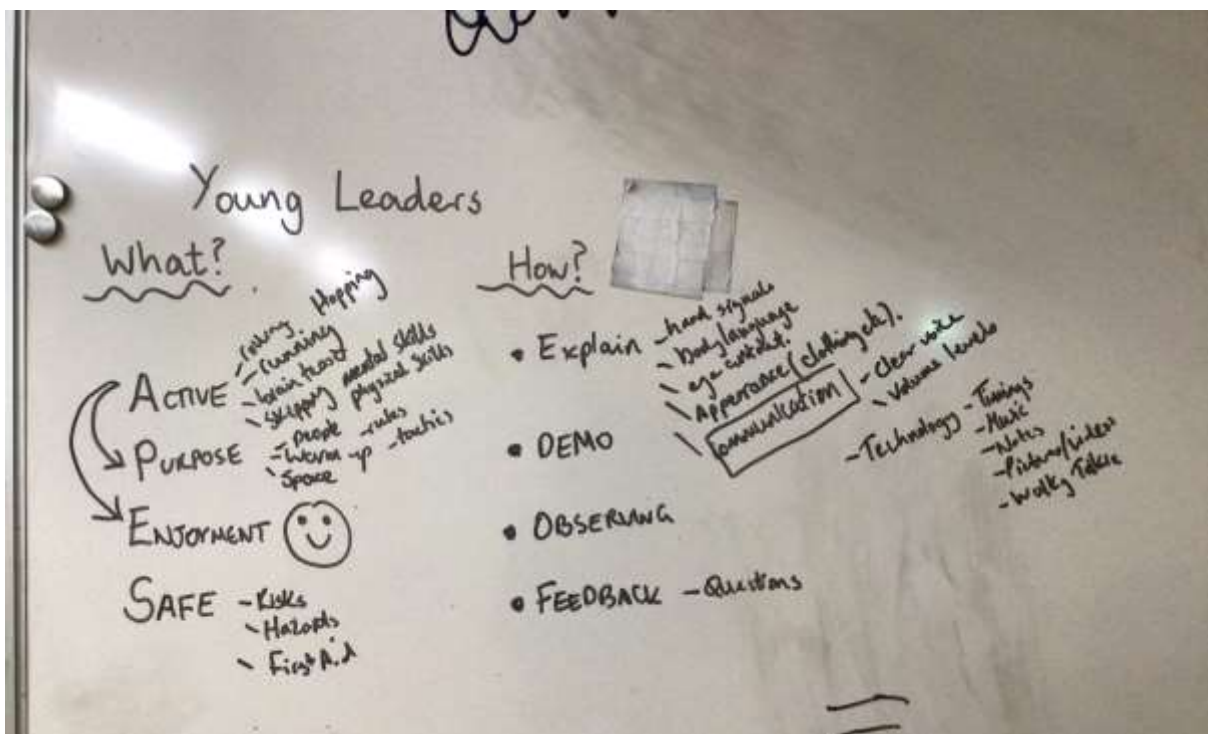 Young Leaders
What?
ACTIVE
- running
Hopping
- brain teaser
- Skipping
mental skills
physical skills
PURPOSE
people
- Warm-up
- rules
- tactics
Space
ENJOYMENT
SAFE - Risks
- Hazards
- First Aid
How?
• Explain - hand signals
- body language
- eye contact.
- Appearance (clothing etc).
Communication
- Clear voice
- Volume levels
• DEMO
- Technology - Timings
- Music
- Notes
- Pictures/videos
- Walky Talkie
• OBSERVING
• FEEDBACK - Questions